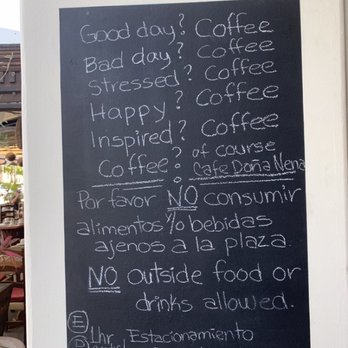 Good day? Coffee
Bad day? Coffee
Stressed? Coffee
Happy? Coffee
Inspired? Coffee
Coffee? of course
Cafe Doña Nena
Por favor NO consumir
alimentos y/o bebidas
ajenos a la plaza.
NO outside food or
drinks allowed.
E 1hr Estacionamiento